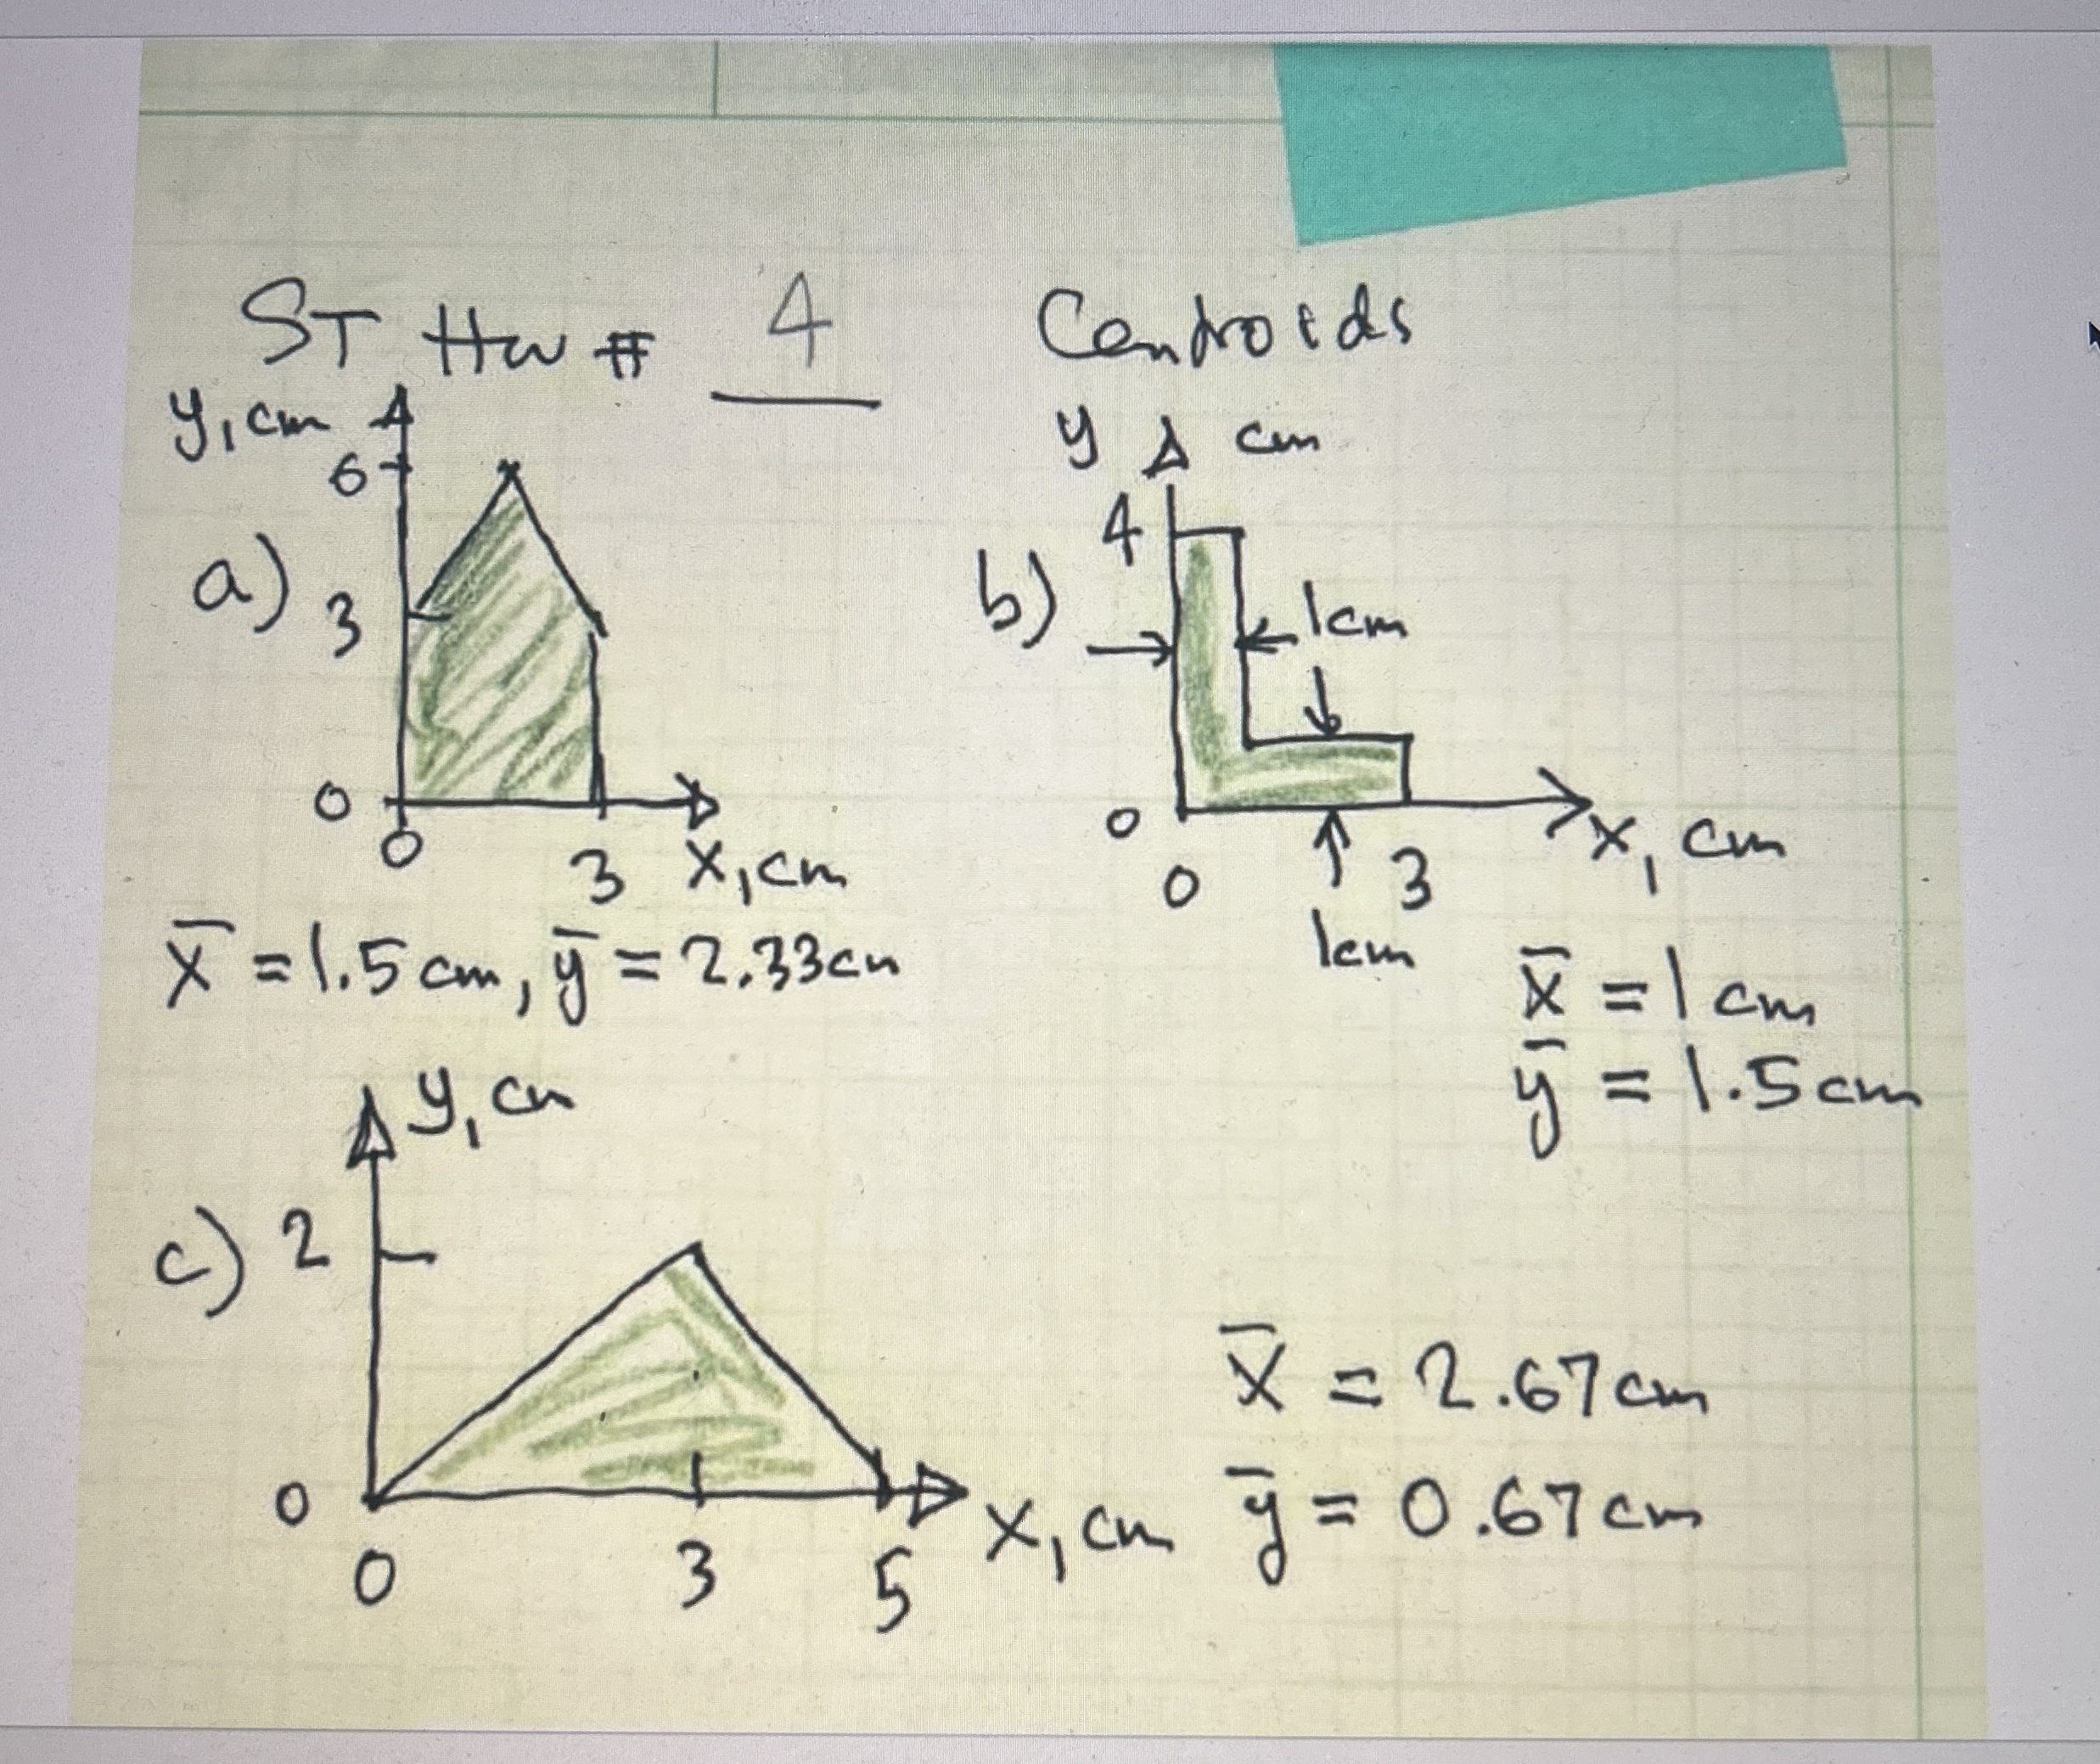 ST HW # 4 Centroids
y, cm
6
a)
3
0
0
3
x, cm
x̄ = 1.5 cm, ȳ = 2.33 cm
y cm
4
b)
1cm
0
0
3
x, cm
1cm
x̄ = 1 cm
ȳ = 1.5 cm
y, cm
c) 2
0
0
3
5
x, cm
x̄ = 2.67 cm
ȳ = 0.67 cm